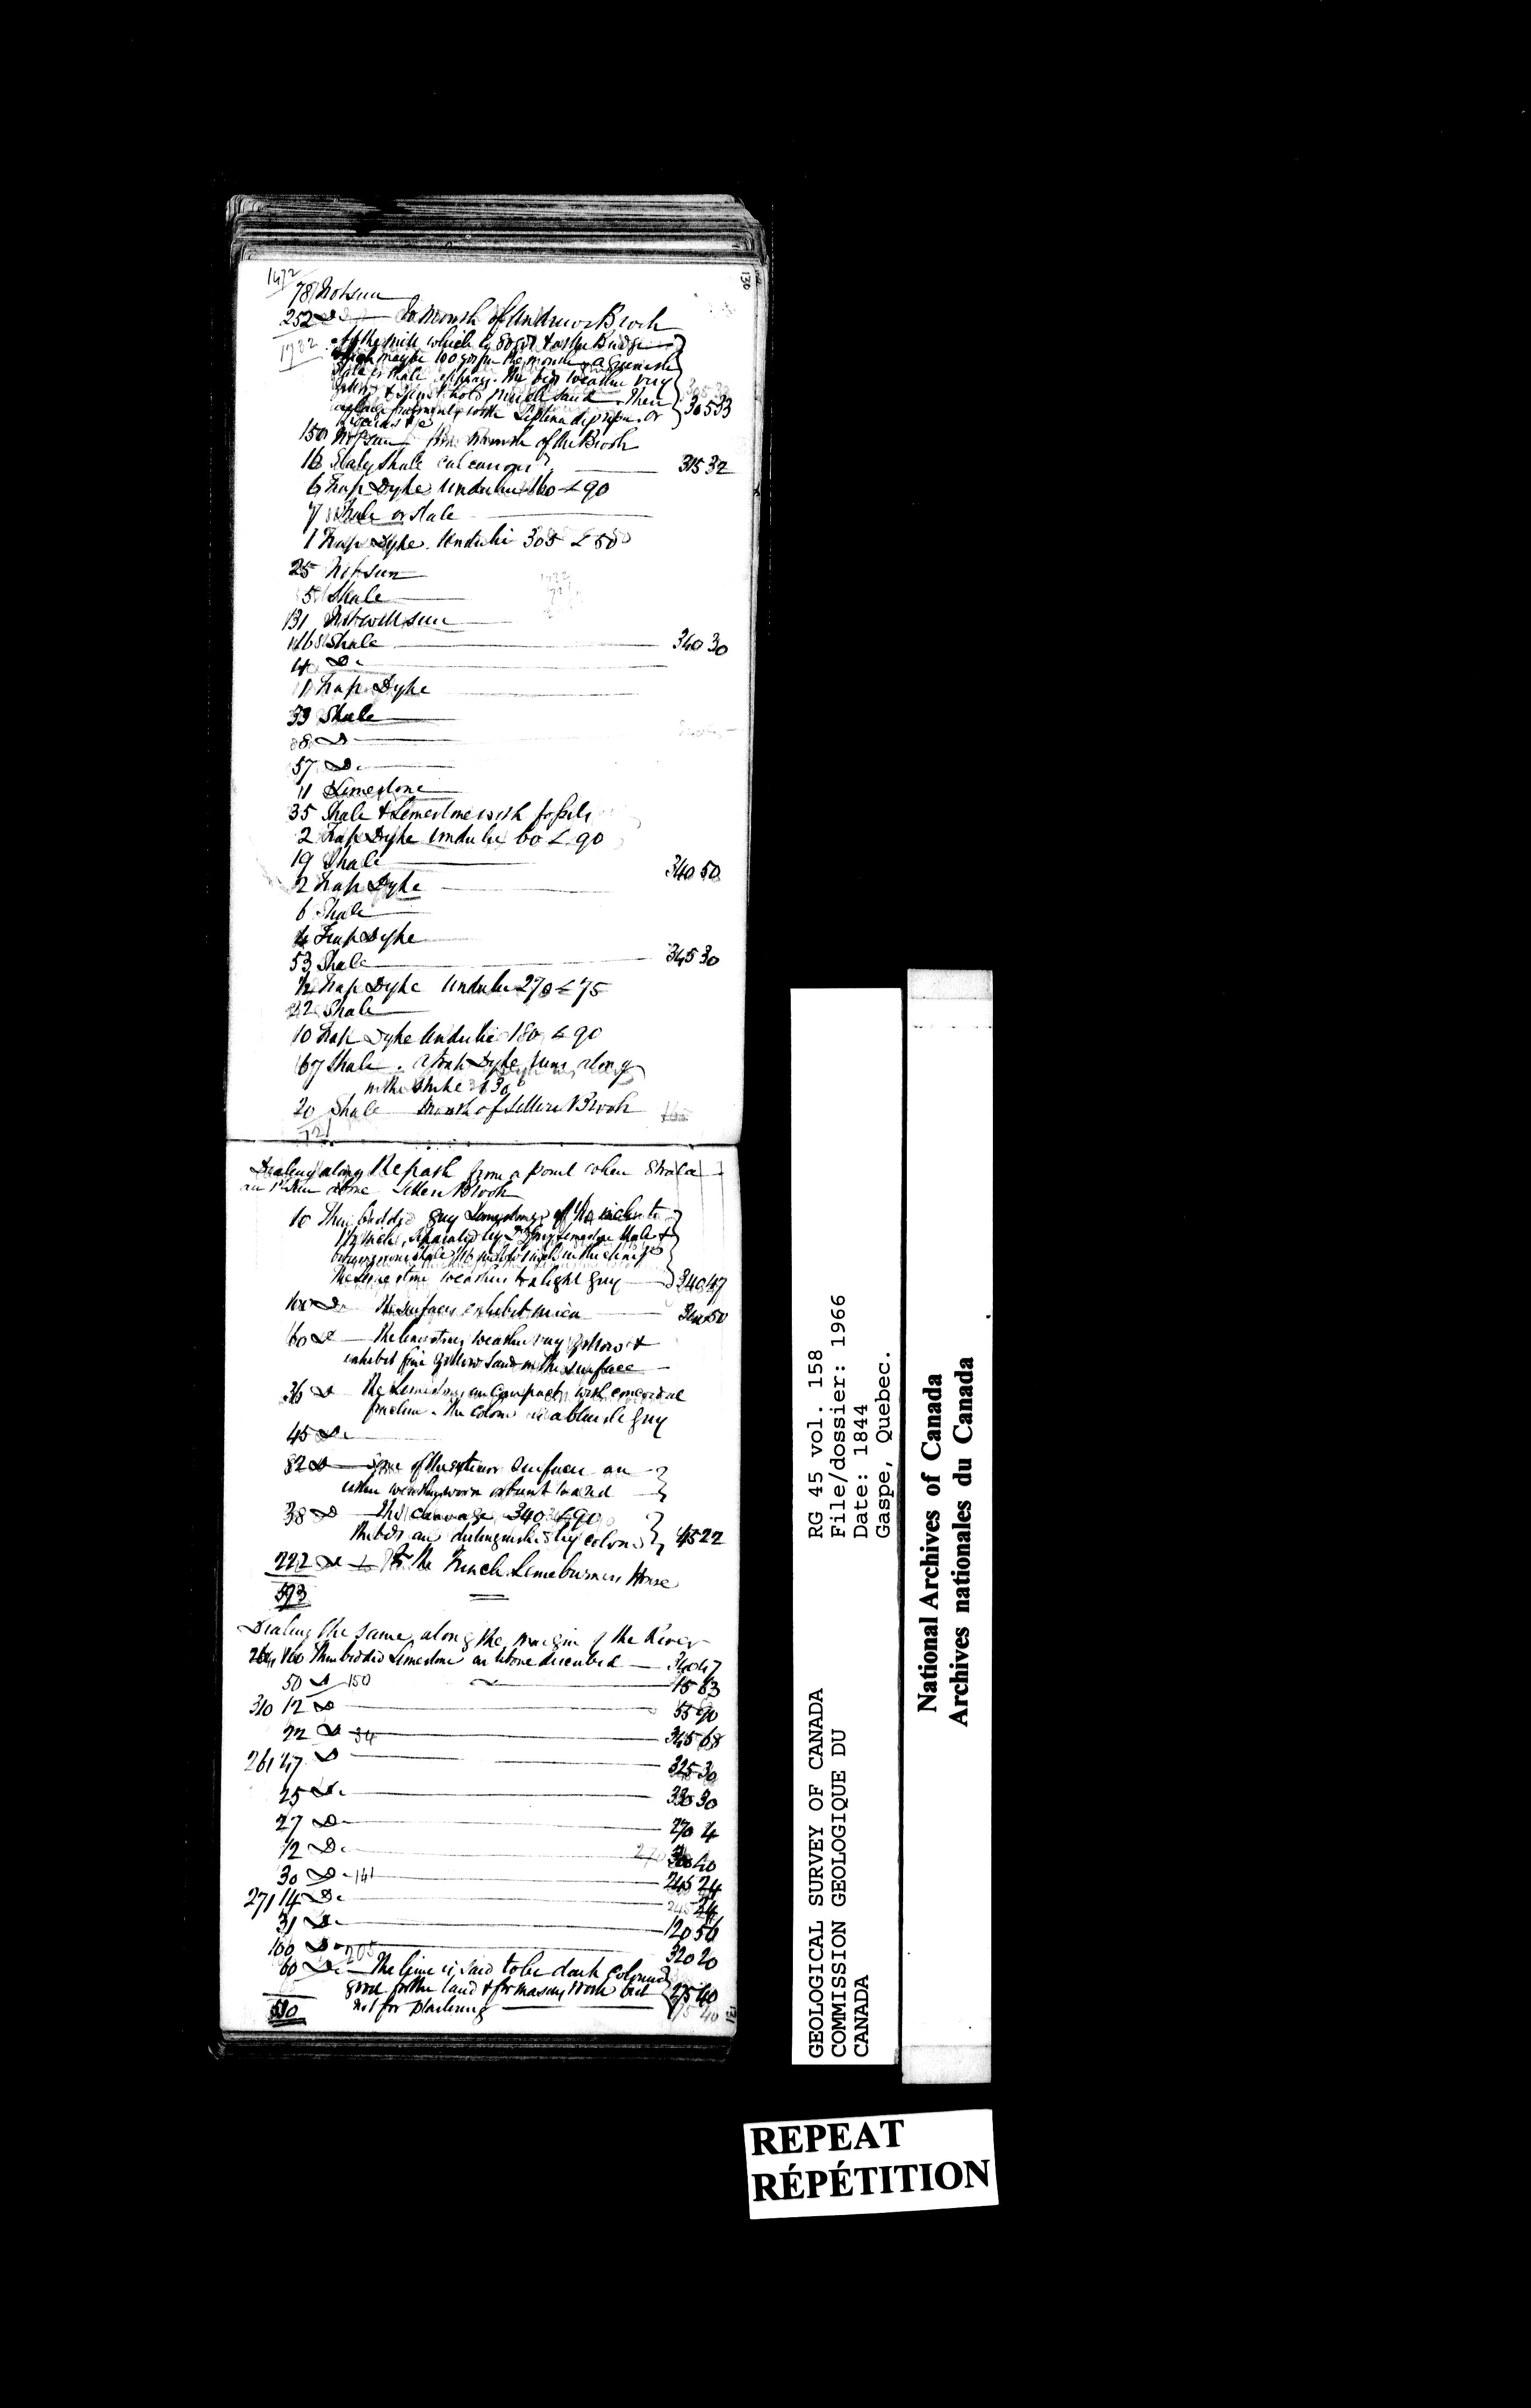 130
1472
78 Not seen
252 Do To mouth of Andrews Brook
1732
At the mile which is 80 yds & at the Bridge
which may be 100 yds from the mouth a Greenish
Slate or Shale appears. The beds weather very
yellow & hold much sand. There
are fragments with Leptena depressa or
305 33
150 Not seen from mouth of the Brook
16 Slaty Shale calcareous? 315 32
6 Trap Dyke Underlie 160 < 90
7 Shale or slate
1 Trap Dyke. Underlie 305 < 50
25 Not seen
5 Shale
131 Not well seen
116 Shale 340 30
4 Do.
11 Trap Dyke
39 Shale
8 Do
57 Do.
11 Limestone
35 Shale & Limestone with fossils
2 Trap Dyke Underlie 60 < 90
19 Shale 340 50
2 Trap Dyke
6 Shale
4 Trap Dyke
53 Shale 345 30
1/2 Trap Dyke Underlie 270 < 75
22 Shale
10 Trap Dyke Underlie 180 < 90
67 Shale. A Trap Dyke runs along
in the strike 130°
20 Shale mouth of Brook
721
Dialing along the path from a point where Strata
are 1st seen above Brook
10 Thin bedded grey Limestones of
1 1/2 inch, separated by Limestone Shale &
The Limestone weathers to a light grey 340 47
100 Do. The surfaces exhibit mica 340 50
60 Do The limestones weather very yellow &
exhibit fine yellow sand on the surface
36 Do The Limestones are compact with concoidal
fracture. The colour is a blueish grey
45 Do.
82 Do Some of the exterior surfaces are
either weather worn or burnt to a red
38 Do The cleavage 340 < 90
The beds are distinguished by colour 45 22
222 Do To the French Limeburners House
593
Dialing the same along the margin of the River
264 100 Thin bedded Limestone as above described 340 47
50 Do 150 15 63
310 12 Do 55 90
22 Do 34 345 68
261 47 Do 325 30
25 Do. 330 30
27 Do 270 4
12 Do. 300 40
30 Do 141 245 24
271 14 Do. 24
31 Do. 120 56
100 Do 320 20
60 Do. 205 The lime is said to be dark coloured
good for the land & for masons work but 275 40
not for plastering
530
131
GEOLOGICAL SURVEY OF CANADA
COMMISSION GEOLOGIQUE DU
CANADA
RG 45 vol. 158
File/dossier: 1966
Date: 1844
Gaspe, Quebec.
National Archives of Canada
Archives nationales du Canada
REPEAT
RÉPÉTITION